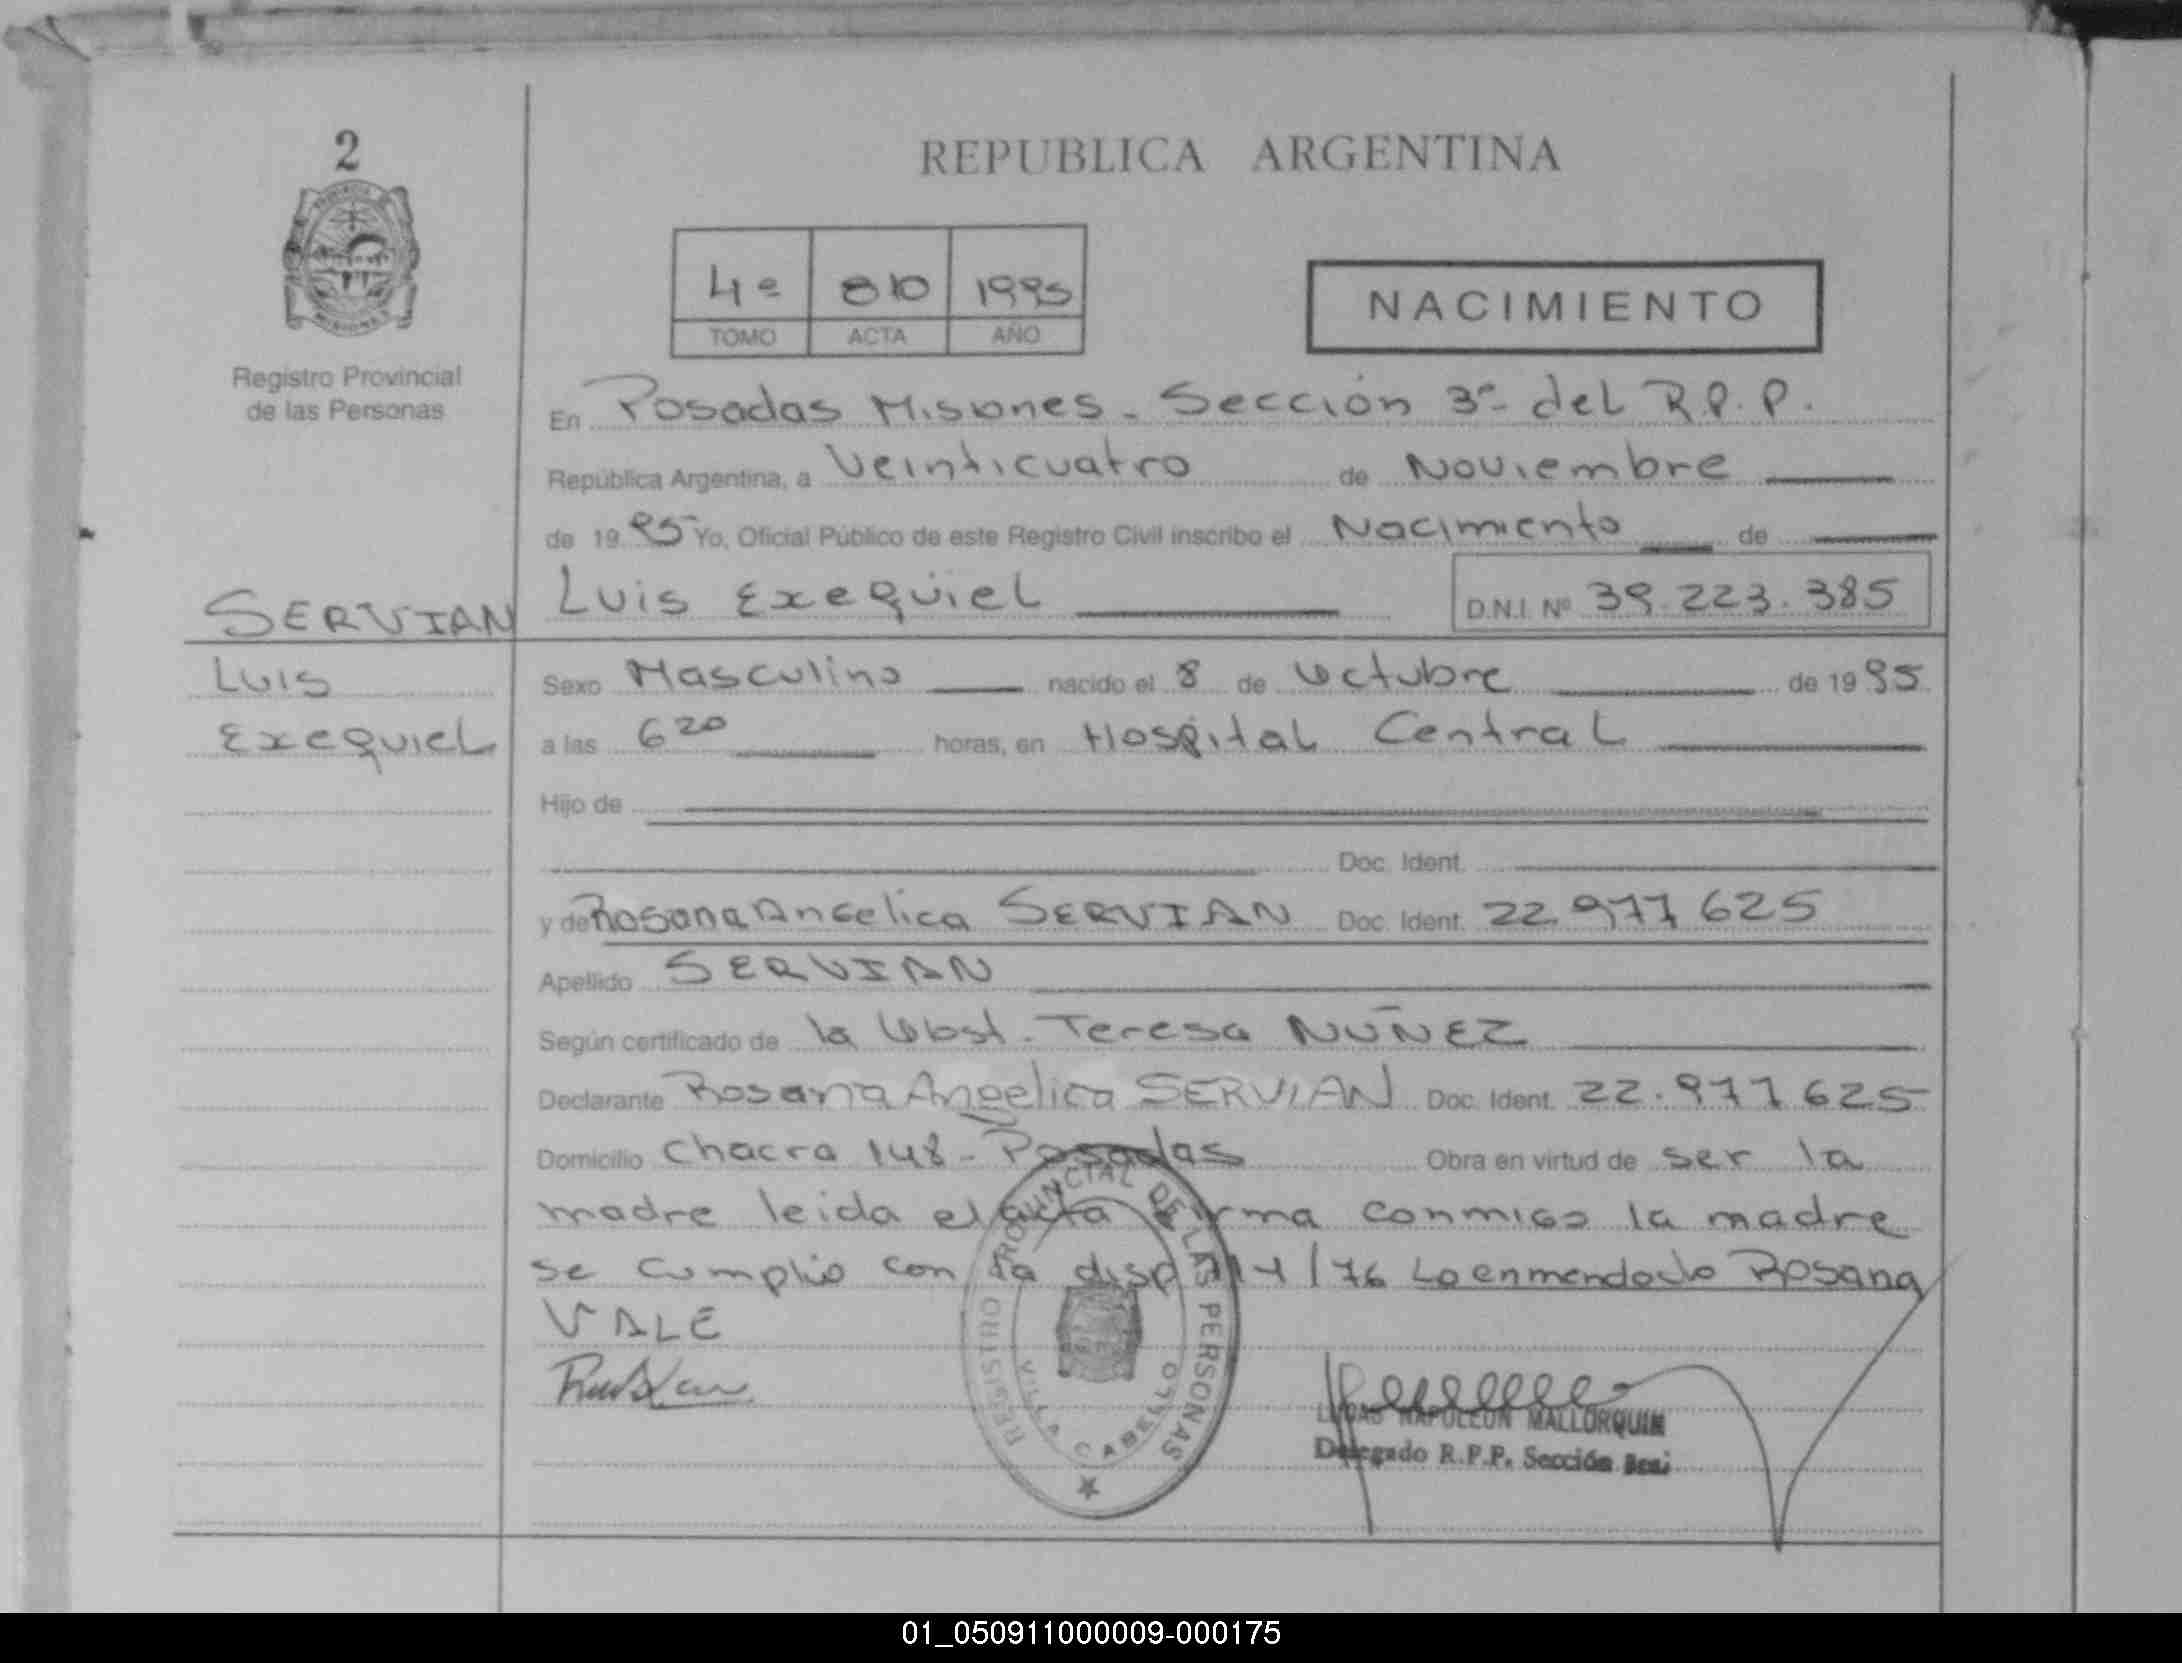 2
PROVINCIA
MISIONES
Registro Provincial
de las Personas
REPUBLICA ARGENTINA
4º 810 1995
TOMO ACTA AÑO
NACIMIENTO
En Posadas Misiones - Sección 3º del R.P.P.
República Argentina, a Veinticuatro de Noviembre
de 1995 Yo, Oficial Público de este Registro Civil inscribo el Nacimiento de
SERVIAN Luis Exequiel D.N.I. Nº 39.223.385
Luis Sexo Masculino nacido el 8 de Octubre de 1995
Exequiel a las 6 20 horas, en Hospital Central
Hijo de
Doc. Ident.
y de Rosana Angelica SERVIAN Doc. Ident. 22.977625
Apellido SERVIAN
Según certificado de la Obst. Teresa NUÑEZ
Declarante Rosana Angelica SERVIAN Doc. Ident. 22.977625
Domicilio Chacra 148 - Posadas Obra en virtud de ser la
madre leida el acta firma conmigo la madre
se cumplio con la disp /76 Lo enmendado Rosana
VALE
REGISTRO PROVINCIAL DE LAS PERSONAS
VILLA CABELLO
LUCAS NAPOLEON MALLORQUIN
Delegado R.P.P. Sección 3era
01_050911000009-000175